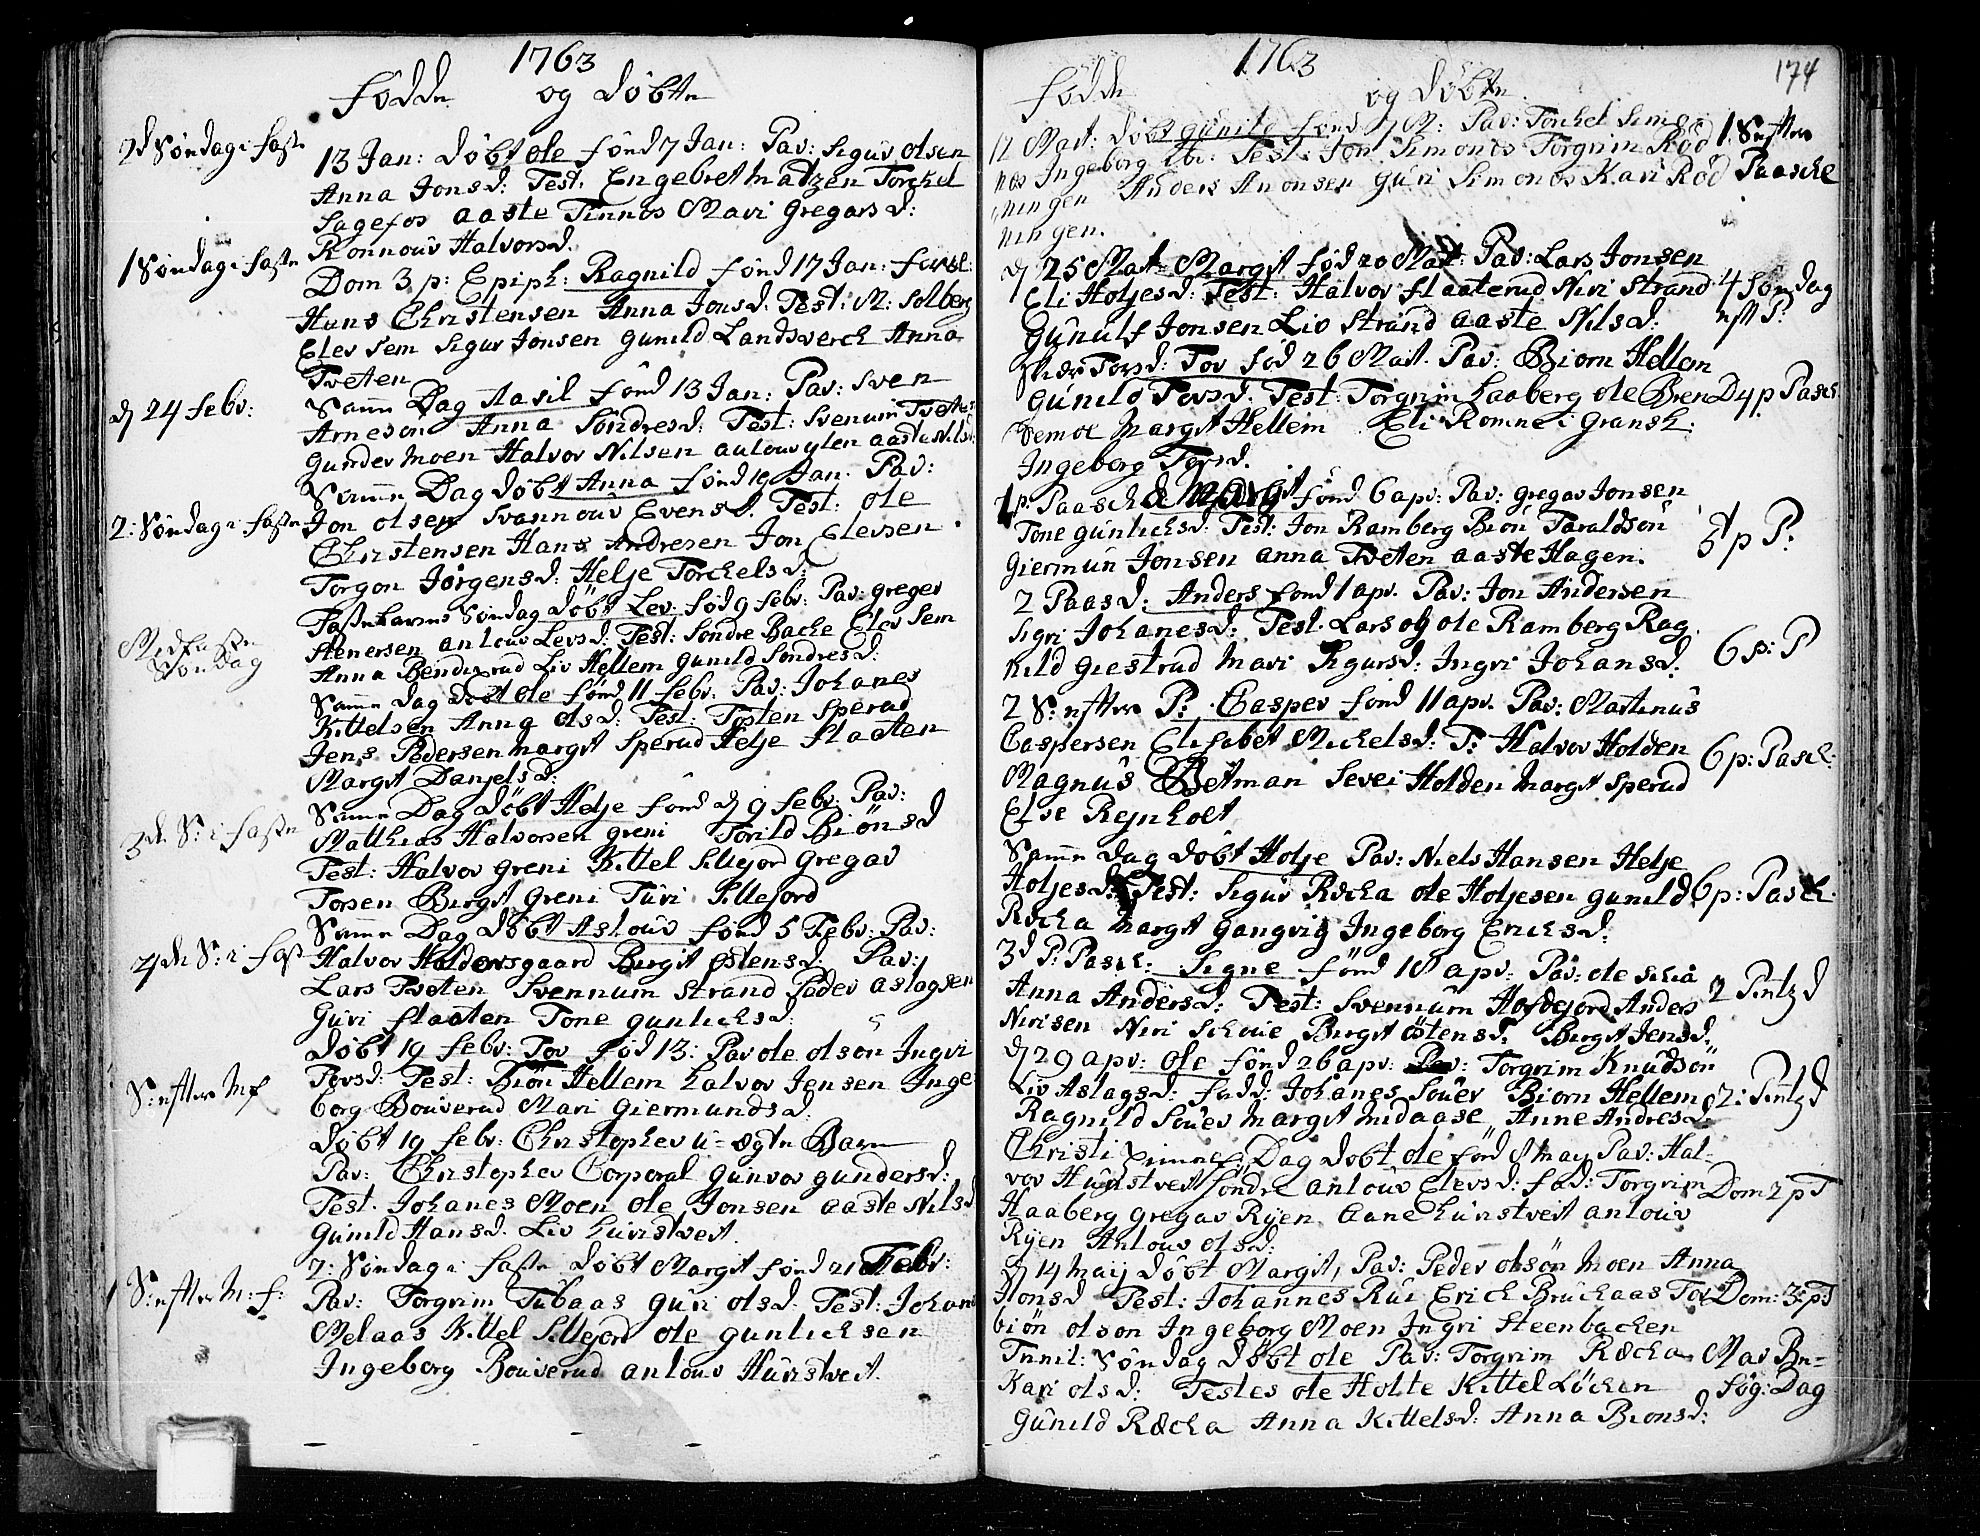 1763
Fødde og Døbte
2d Søndag i Faste
13 Jan: Døbt Ole fønd 7 Jan: Par: Sigur Olsen
Anna Jonsd: Test: Engebret Matzen Torchel
Sagefos Aaste Tinnes Mari Gregars d:
Ronnouv Halvorsd.
1 Søndag i Fasten
Dom 3 p: Epiph: Ragnild fønd 17 Jan:
Hans Christensen Anna Jonsd: Test: N: Solberg
Elev Sem Sigur Jonsen Gunild Landsverck Anna
Tveten
d 24 Febr:
Samme Dag Aasil fønd 13 Jan: Par: Sven
Arneson Anna Sondresd: Test: Svenum Tveten
Gunder Moen Halvor Nilsen Aaste Nilsd
Samme Dag døbt Anna fønd 19 Jan. Par:
2: Søndag i Fasten
Jon Olsen Svannouv Evensd. Test: Ole
Christensen Hans Andresen Jon Elevsen
Torgon Jørgensd: Helje Torchelsd.
Fastelavens Søndag døbt Lev. fød 9 Febr: Par: Greger
Stenersen Anlouv Levsd: Test: Sondre Bache Elev Sem
Midfaste Søndag
Anna Benderud Liv Hellem Gunild Sondresd:
Samme Dag døbt Ole fønd 11 Febr. Par: Johanes
Kittelsen Anna Olsd: Test: Tosten Sperud
Jens Pedersen Margit Sperud Helje Flaaten
Margit Danjelsd:
Samme Dag døbt Helje fønd d 9 Febr: Par:
3de S: i Fasten
Matthias Halvorsen Greni Torild Biönsd
Test: Halvor Greni Kittel Sillejord Gregar
Torsen Birgit Greni Turi Sillejord
Samme Dag døbt Aslouv fønd 5 Febr: Par:
4de S: i Fast
Halvor Haldorsgaard Birgit Østensd: Par:
Lars Tveten Svennum Strand Peder Aslagsen
Guri Flaaten Tone Gunlichsd:
Døbt 19 Febr: Tov fød 13: Par Ole Olson Ingri
S: efter Mf
Torsd: Test: Biön Hellem Halvor Jensen Inge
borg Bouverud Mari Giermundsd:
Døbt 19 Febr: Christopher u-egte Barn
Par: Christopher Corporal Gunvor Gundersd:
Test. Johanes Moen Ole Jonsen Aaste Nilsd
Gunild Hansd. Liv Hurstveit.
S: efter M: f:
2: Søndag i Faste døbt Margit fønd 21 Febr:
Par: Torgrim Tubaas Guri Olsd: Test: Johan
Melaas Kittel Sillejord Ole Gunlichsen
Ingeborg Bouverud Anlouv Hurstveit.
1763
174
Fødde og Døbte
12 Mart: Døbt Gunild fønd 7 M: Par: Torchel Simo 1 S: efter
nos Ingeborg Test: Jon Simonos Torgrim Rød Paasche
ningen Anders Anonsen Guri Simonos Kari Rød
ningen.
d 25 Mart Margit fød 20 Mart: Par: Lars Jonsen
Eli Holjesd: Test: Halvor Flaaterud Niri Strand 4 Søndag
Gunulf Jonsen Liv Strand Aaste Nilsd: eft P:
Torsd: Tov fød 26 Mart. Par: Biorn Hellem
Gunild Torsd. Test: Torgrim Haaberg Ole Bren D 4 p Pasch
Margit Hellem Eli Romne i Gransh:
Ingeborg Torsd.
1 p. Paasche d: Margit fønd 6 apr: Par: Gregar Jonsen
Tone Gunlichsd: Test: Jon Ramberg Biön Taraldson 5t p P:
Giermun Jonsen Anna Tveten Aaste Hagen.
2 Paasd: Anders fønd 1 apr. Par: Jon Andersen
Sigri Johanesd: Test. Lars og Ole Ramberg Rag
nild Giestrud Mari Sigursd: Ingri Johansd. 6 p: P
2 S: efter P: Casper fønd 11 apr. Par: Martinus
Caspersen Elisabet Michelsd: T: Halvor Holden
Magnus Betman Sevei Holden Margit Sperud 6 p: Pasch:
Else Rejnholt
Samme Dag døbt Holje Par: Niels Hansen Helje
Holjesd: Test: Sigur Rocha Ole Holjesen Gunild 6 p: Pasch.
Rocha Margit Gangvig Ingeborg Ericksd:
3d P: Pasch: Signe fønd 18 apr: Par: Ole
Anna Andersd: Test: Svennum Anders 2 Pintzd
Nirisen Niri Birgit Östensd. Birgit Jensd.
d 29 apr: Ole fønd 26 apr: Par: Torgrim Knudson
Liv Aslagsd: Fadd: Johanes Souer Biorn Hellem 2: Pintzd
Ragnild Souer Margit Midaase Anne Andresd
Christi Himmelf: Dag døbt Ole fønd 8 May Par: Hal-
vor Hurstveit Søndre Anlouv Elevsd: Fad: Torgrim Dom 2 p T
Haaberg Gregar Ryen Aane Hurstveit Anlouv
Ryen Anlouv Olsd:
d 14 Maij døbt Margit, Par: Peder Olsøn Moen Anna
Jonsd Test: Johannes Rui Erich Bruchaas Tor Dom: 3: p T
biön Olson Ingeborg Moen Ingri Steenbachen
Trinit: Søndag døbt Ole Par: Torgrim Rocha Mar Be-
Kari Olsd: Testes Ole Holte Kittel Löchen søg: Dag
Gunild Rocha Anna Kittelsd: Anna Bionsd: